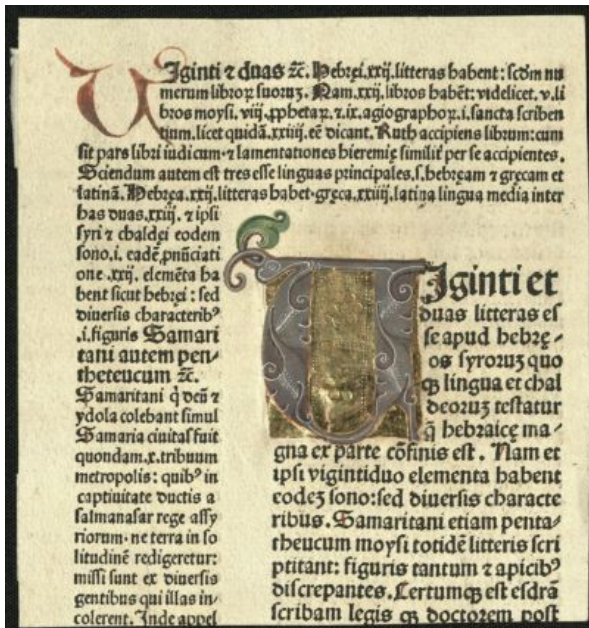 Viginti ⁊ duas ⁊c̃. Hebręi.xxij.litteras habent : scd̃m nu
merum libroꝝ suoruꝫ. Nam.xxij. libros habẽt: videlicet. v. li
bros moysi. viij. ꝓphetaꝝ. ⁊.ix. agiographoꝝ. i. sancta scriben
tium. licet quidã. xxiiij. eẽ dicant. Ruth accipiens librum: cum
sit pars libri iudicum· ⁊ lamentationes hieremię similit̃ per se accipientes.
Sciendum autem est tres esse linguas principales .s. hebręam ⁊ gręcam et
latinã. Hebręa. xxij. litteras habet· gręca. xxiiij. latina lingua media inter
has duas. xxiij. ⁊ ipsi
syri ⁊ chaldęi eodem
sono. i. eadẽ pnũciati
one .xxij. elemẽta ha
bent sicut hebręi : sed
diuersis characterib⁹
.i. figuris Samari
tani autem pen⸗
theteucum ⁊c̃.
Samaritani q̇ deũ ⁊
ydola colebant simul
Samaria ciuitas fuit
quondam .x. tribuum
metropolis : quib⁹ in
captiuitate ductis a
salmanasar rege assy
riorum· ne terra in so
litudinẽ redigeretur:
missi sunt ex diuersis
gentibus qui illas in⸗
colerent. Inde appel
Viginti et
duas litteras es
se apud hebrę⸗
os syroruꝫ quo
qꝫ lingua et chal
deoruꝫ testatur
q̃ hebraicę ma⸗
gna ex parte cõfinis est . Nam et
ipsi vigintiduo elementa habent
eodeꝫ sono: sed diuersis characte
ribus. Samaritani etiam penta⸗
theucum moysi totidẽ litteris scri
ptitant: figuris tantum ⁊ apicib⁹
discrepantes. Certumqꝫ est esdrã
scribam legis qꝫ doctorem post